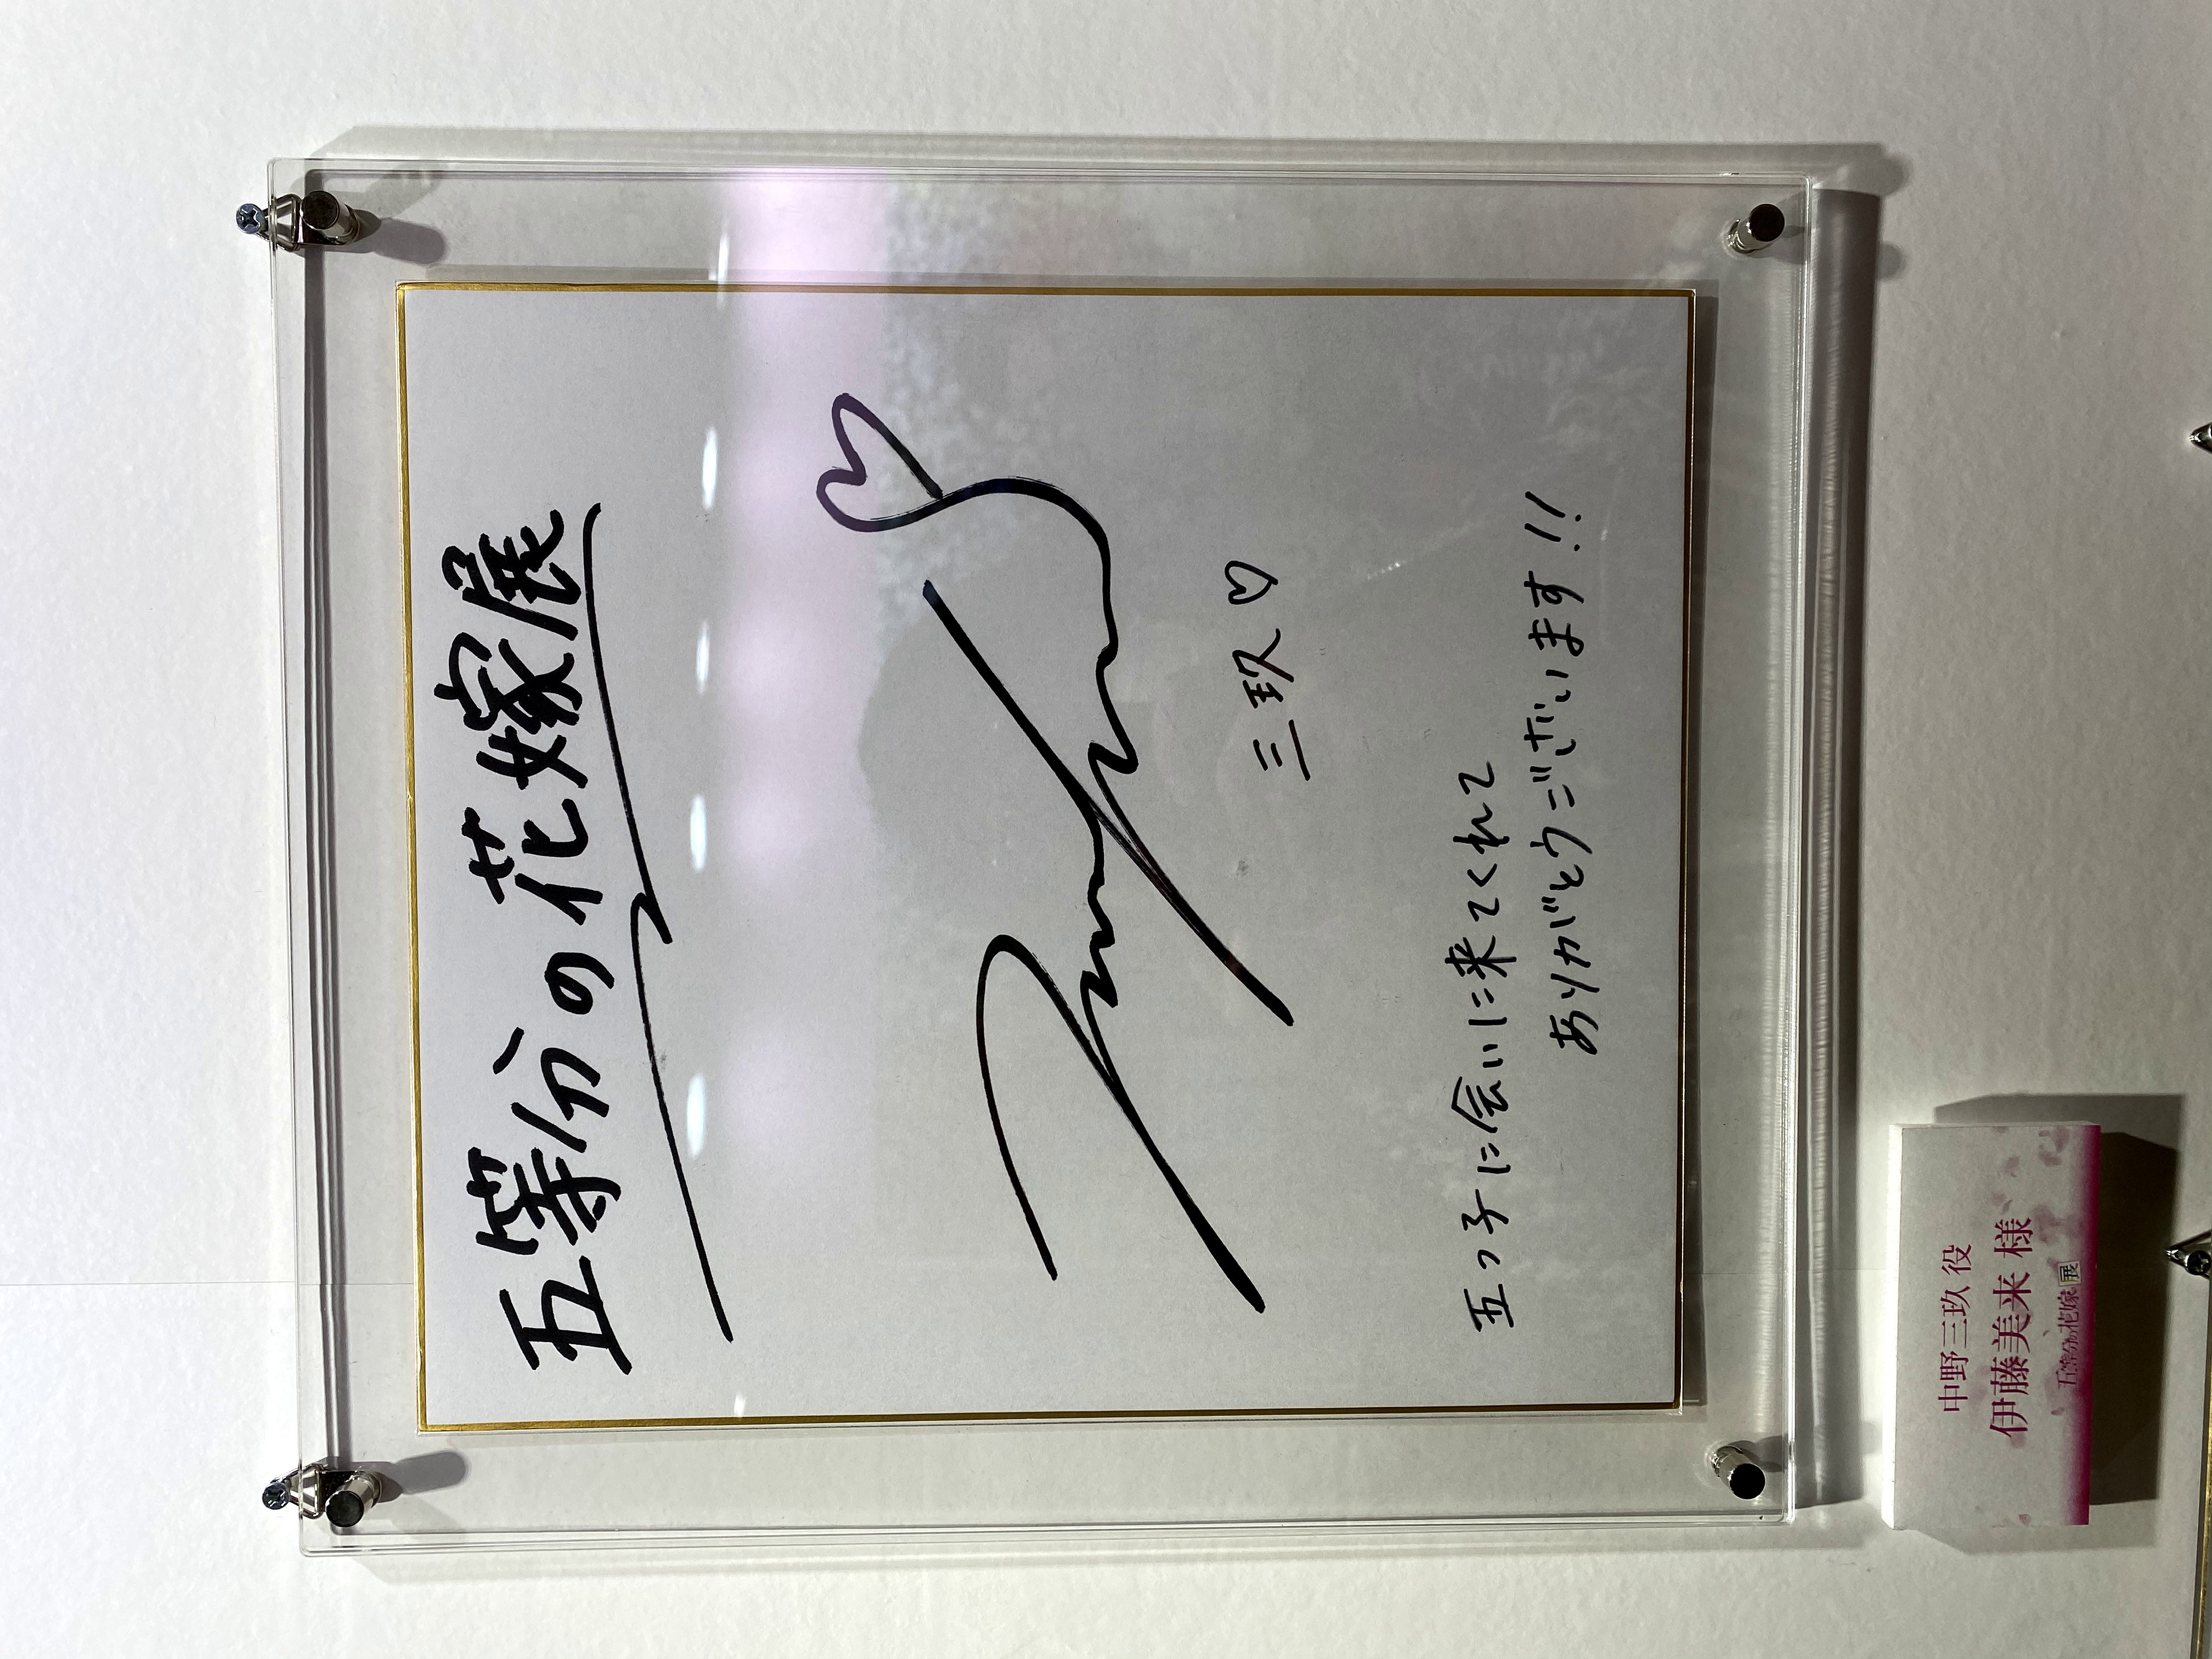 五等分の花嫁展
三玖♡
五つ子に会いに来てくれて
ありがとうございます!!
中野三玖 役
伊藤美来 様
五等分の花嫁 展